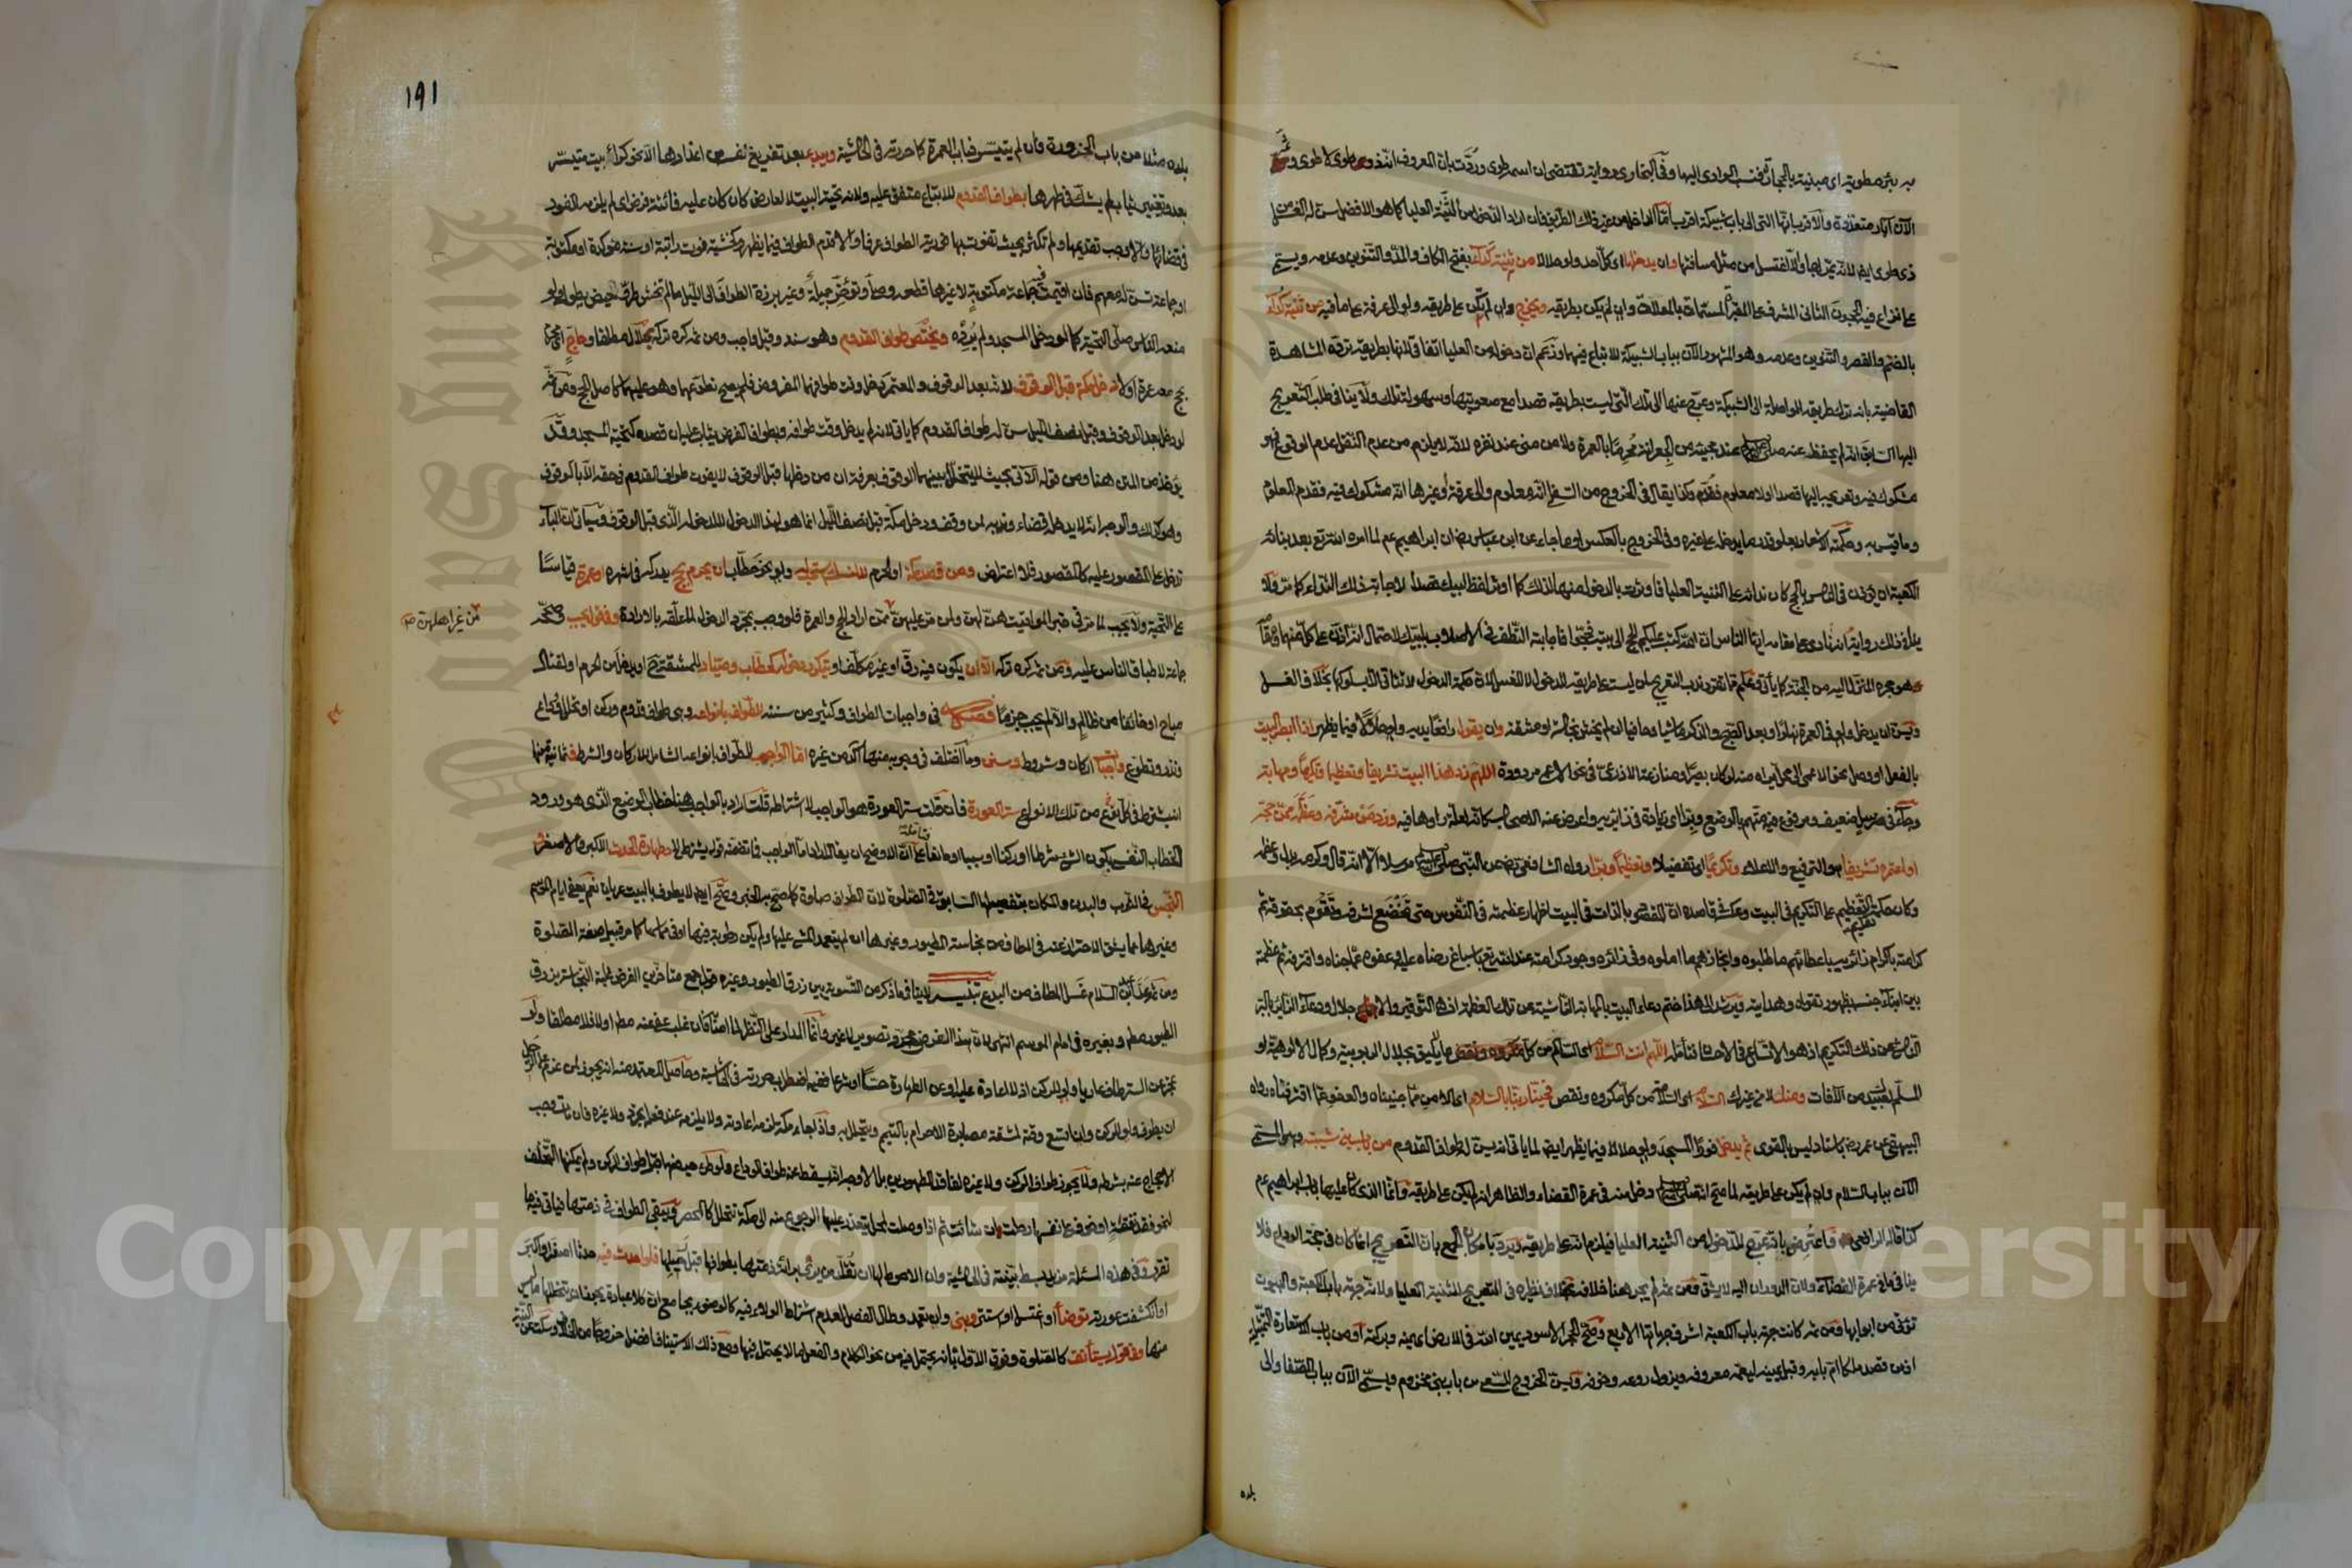 به بئر مطوية اى مبنية بالحجارة فنسب الوادى اليها وفى البخارى رواية تقتضى ان اسمه طوى وردت بان المعروف انه ذو طوى لا طوى
الآن آبار متعددة والاقرب انها التى الى باب شبيكة اقرب اما الداخل من غير تلك الطريق فان اراد الدخول من الثنية العليا كما هو الافضل سن له الغسل من
ذى طوى ايضا لانه يمر بها والا اغتسل من مثل مسافتها وان يدخلها اى كل احد ولو حلالا من ثنية كداء بفتح الكاف والمد والتنوين وعدمه ويسمى
على نزاع فيه الحجون الثانى المشرف على المقبرة المسماة بالمعلاة وان لم يكن بطريقه ويخرج وان لم يكن على طريقه ولو الى عرفة على ما فيه من ثنية كدا
بالضم والقصر والتنوين وعدمه وهو المشهور الآن بباب الشبيكة للاتباع فيهما وزعم ان دخوله من العليا اتفاقى لانها بطريقه ترده المشاهدة
القاضية بانه ترك طريقه الواصلة الى الشبيكة وعرج عنها الى تلك التى ليست بطريقه قصدا مع صعوبتها وسهولة تلك ولا ينافى طلب التعريج
اليها السابق انه لم يحفظ عنه صلى الله عليه وسلم عند مجيئه من الجعرانة محرما بالعمرة ولا من منى عند نفره لانه لا يلزم من عدم النقل عدم الوقوع فهو
مشكوك فيه وتعريجه اليها قصدا اولا معلوم فقدم وكذا يقال فى الخروج من السفلى انه معلوم والى عرفة او غيرها انه مشكوك فيه فقدم المعلوم
وما قيس به وحكمته الاشعار بعلو قدر ما يدخل على غيره وفى الخروج بالعكس او ما جاء عن ابن عباس رضى ان ابراهيم عم لما امره الله تع بعد بنائه
الكعبة ان يؤذن فى الناس بالحج كان نداؤه على الثنية العليا فاوثرت بالدخول منها لذلك كما اوثر لفظ لبيك قصدا لاجابة ذلك النداء كما مر ولا
ينافى ذلك رواية انه نادى على مقامه ايها الناس ان الله كتب عليكم الحج الى بيته فحجوا فاجابته النطف فى الاصلاب بلبيك لاحتمال انه اذن على كل منهما
هو حجره المنزل اليه من الجنة كما يأتى وعلم مما تقرر ندب التعريج لمن ليست على طريقه للدخول لا للغسل لان حكمة الدخول لا تتأتى الا بسلوكها بخلاف الغسل
ويسن ان يدخل ولو فى العمرة نهارا وبعد الصبح والذكر ماشيا وحافيا ان لم يخش نجاسة او مشقة وان يقول رافعا يديه ولو حلالا فيما يظهر اذا ابصر البيت
بالفعل او وصل نحو الاعمى الى محل يراه منه لو كان بصيرا وما نازع به الاذرعى فى نحو الاعمى مردود اللهم زد هذا البيت تشريفا وتعظيما وتكريما ومهابة
وجاء فى مرسل ضعيف ومرفوع فيه متهم بالوضع وبرا اى زيادة فى زائريه واعرض عنه الاصحاب كانه لعلة رأوها فيه وزد من شرفه وعظمه ممن حجه
او اعتمره تشريفا هو الترفيع والاعلاء وتكريما اى تفضيلا وتعظيما وبرا رواه الشافعى رضى عن النبى صلى الله عليه وسلم مرسلا الا انه قال وكرمه بدل وعظمه
وكان حكمة تقديم التعظيم على التكريم فى البيت وعكسه فى قاصده ان المقصود بالذات فى البيت اظهار عظمته فى النفوس حتى تخضع لشرفه وتقوم بحقوقه ثم
كرامته باكرام زائريه باعطائهم ما طلبوه وانجازهم ما املوه وفى زائره وجود كرامته عند الله تع باسباغ رضاه عليه وعفوه عما جناه واقترفه ثم عظمته
بين ابناء جنسه بظهور تقواه وهدايته ويرشد الى هذا ختم دعاء البيت بالمهابة الناشئة عن تلك العظمة اذ هى التوقير والاجلال ودعاء الزائر بالبر
الناشئ عن ذلك التكريم اذ هو الاتساع فى الاحسان فتأمله اللهم انت السلام اى السالم من كل ما لا يليق بجلال الربوبية وكمال الالوهية او
المسلم لعبيدك من الآفات ومنك لا من غيرك السلام اى السلامة من كل مكروه ونقص فحينا ربنا بالسلام اى الامن مما جنيناه والعفو عما اقترفناه رواه
البيهقى عن عمر رضى باسناد ليس بالقوى ثم يدخل فورا المسجد ولو حلالا فيما يظهر ايضا لما يأتى انه يسن له طواف القدوم من باب بنى شيبة وهو المسمى
الآن بباب السلام وان لم يكن على طريقه لما صح انه صلى الله عليه وسلم دخل منه فى عمرة القضاء والظاهر انه لم يكن على طريقه وانما الذى كان عليها باب ابراهيم عم
كذا قاله الرافعى واعترض بانه عرج للدخول من الثنية العليا فيلزم انه على طريقه ويرد بامكان الجمع بان التعريج انما كان فى حجة الوداع فلا
ينافى ما فى عمرة القضاء ولان الدوران اليه لا يشق ومن ثم لم يجر هنا خلاف بخلاف نظيره فى التعريج للثنية العليا ولانه جهة باب الكعبة والبيوت
تؤتى من ابوابها ومن ثم كانت جهة باب الكعبة اشرف جهاتها الاربع وصح الحجر الاسود يمين الله فى الارض اى يمنه وبركته او من باب الاستعارة التمثيلية
اذ من قصد ملكا ام بابه وقبل يمينه ليعمه معروفه ويزول روعه وخوفه ويسن الخروج للسعى من باب بنى مخزوم ويسمى الآن بباب الصفا والى
بلده
191
بلده مثلا من باب الحزورة فان لم يتيسر فباب العمرة كما حررته فى الحاشية ويبدأ بعد تفريغ نفسه من اعذارها الا نحو كراء بيت متيسر
بعد وتغيير ثياب لم يشك فى طهرها بطواف القدوم للاتباع متفق عليه ولانه تحية البيت لا لعارض كان كان عليه فائتة فرض اى لم يلزمه الفور
فى قضائها والا وجب تقديمها ولم تكثر بحيث تفوت بها فورية الطواف عرفا والا قدم الطواف فيما يظهر وكخشية فوت راتبة او سنة مؤكدة او مكتوبة
او جماعة تسن له معهم فان اقيمت جماعة مكتوبة لا غيرها قطعه وصلى وتؤخر جميلة وغير برزة الطواف الى الليل ما لم تخش طرو حيض يطول ولو
منعه الناس صلى التحية كما لو دخل المسجد ولم يرده ويختص طواف القدوم وهو سنة وقيل واجب ومن ثم كره تركه بحلال مطلقا وحاج اى محرم
بحج معه عمرة او لا دخل مكة قبل الوقوف لانه بعد الوقوف والمعتمر دخل وقت طوافهما المفروض فلم يصح تطوعهما وهو عليهما كاصل الحج ومن ثم
لو دخل بعد الوقوف وقبل نصف الليل سن له طواف القدوم كما يأتى لانه لم يدخل وقت طوافه وبطواف الفرض يثاب عليه ان قصده كتحية المسجد وقد
يؤخذ من المتن هنا ومن قوله الآتى بحيث لا يتخلل بينهما الوقوف بعرفة ان من دخلها قبل الوقوف لا يفوت طواف القدوم فى حقه الا بالوقوف
وهو كذلك والوجه انه لا يدخله قضاء وندبه لمن وقف ودخل مكة قبل نصف الليل انما هو لهذا الدخول لا للدخول الذى قبل الوقوف وسيأتى ان الباء
تدخل على المقصور عليه كالمقصور فلا اعتراض ومن قصد مكة او الحرم لا لنسك استحب له ولو نحو حطاب ان يحرم بحج يدركه فى اشهره او عمرة قياسا
على التحية ولا يجب لما مر فى خبر المواقيت هن لهن ولمن مر عليهن ممن اراد الحج والعمرة فلو وجب بمجرد الدخول لما علقه بالارادة وفى قول يجب وصححه
من غير اهلهن صح
جماعة لاطباق الناس عليه ومن ثم كره تركه الا ان يكون فيه رق او غير مكلف او يتكرر دخوله كحطاب وصياد للمشقة حينئذ او يدخل من الحرم او لقتال
مباح او خائفا من ظالم والا لم يجب جزما فصل فى واجبات الطواف وكثير من سننه للطواف بانواعه وهى طواف قدوم وركن او تحلل او وداع
ونذر وتطوع واجبات اركان وشروط وسنن وما اختلف فى وجوبه منها آكد من غيره اما الواجب للطواف بانواعه الشامل للاركان والشرط فثمانية منها
انه يشترط فى كل نوع من تلك الانواع ستر العورة فان قلت ستر العورة هو الواجب لا اشتراطه قلت اراد بالواجب هنا خطاب الوضع الذى هو ورود
الخطاب النفسى بكون الشئ شرطا او ركنا او سببا او مانعا على ان الاوضح ان يقال المراد اما الواجب فما تضمنه قولى يشترط الى وطهارة الحدث الاكبر والاصغر
النجس فى الثوب والبدن والمكان بتفصيلها السابق فى الصلوة لان الطواف صلوة كما صح به الخبر وصح ايضا لا يطوف بالبيت عريان نعم يعفى ايام الموسم
وغيرها عما يشق الاحتراز عنه فى المطاف من نجاسة الطيور وغيرها ان لم يتعمد المشى عليها ولم يكن رطوبة فيها او فى مماسها كما مر قبيل صفة الصلوة
ومن ثم عد ابن عبد السلام غسل المطاف من البدع تنبيه لا ينافى ما ذكر من التسوية بين زرق الطيور وغيره قول جمع متأخرين الفرض غلبة النجاسة بزرق
الطيور مطر وبغيره فى ايام الموسم انتهى لان هذا الفرض مجرد تصوير لا غير وانما المدار على النظر لما امتاز فان غلب عفى عنه مطر او لا فلا مطلقا ولو
عجز عن الستر طاف عاريا ولو للركن اذ لا اعادة عليه او عن الطهارة حسا او شرعا ففيه اضطراب حررته فى الحاشية وحاصل المعتمد منه انه يجوز لمن عزم على الرحيل
ان يطوف ولو للركن وان اتسع وقته لمشقة مصابرة الاحرام بالتيمم ويتحلل به واذا جاء مكة لزمه اعادته ولا يلزمه عند فعله تجرد ولا غيره فان مات وجب
الاحجاج عنه بشرطه ولا يجوز طواف الركن ولا غيره لفاقد الطهورين بل الاوجه انه يسقط عنه طواف الوداع ولو طرأ حيضها قبل طواف الركن ولم يمكنها التخلف
لنحو فقد نفقة او خوف على نفسها رحلت ان شاءت ثم اذا وصلت لمحل يتعذر عليها الرجوع منه الى مكة تتحلل كالمحصر ويبقى الطواف فى ذمتها فيأتى فيه ما
تقرر وفى هذه المسئلة مزيد بسط بينته فى الحاشية وان الاحوط لها ان تقلد من يرى براءة ذمتها بطوافها قبل رحيلها فلو احدث فيه حدثا اصغر او اكبر
او انكشفت عورته توضأ او اغتسل او استتر وبنى وان تعمد وطال الفصل لعدم اشتراط الولاء فيه كالوضوء بجامع ان كلا عبادة يجوز ان يتخللها ما ليس
منها وفى قول يستأنف كالصلوة وفرق الاول بانه يحتمل فيه من نحو الكلام والفعل ما لا يحتمل فيها ومع ذلك الاستيناف افضل خروجا من الخلاف وسكت عن النية